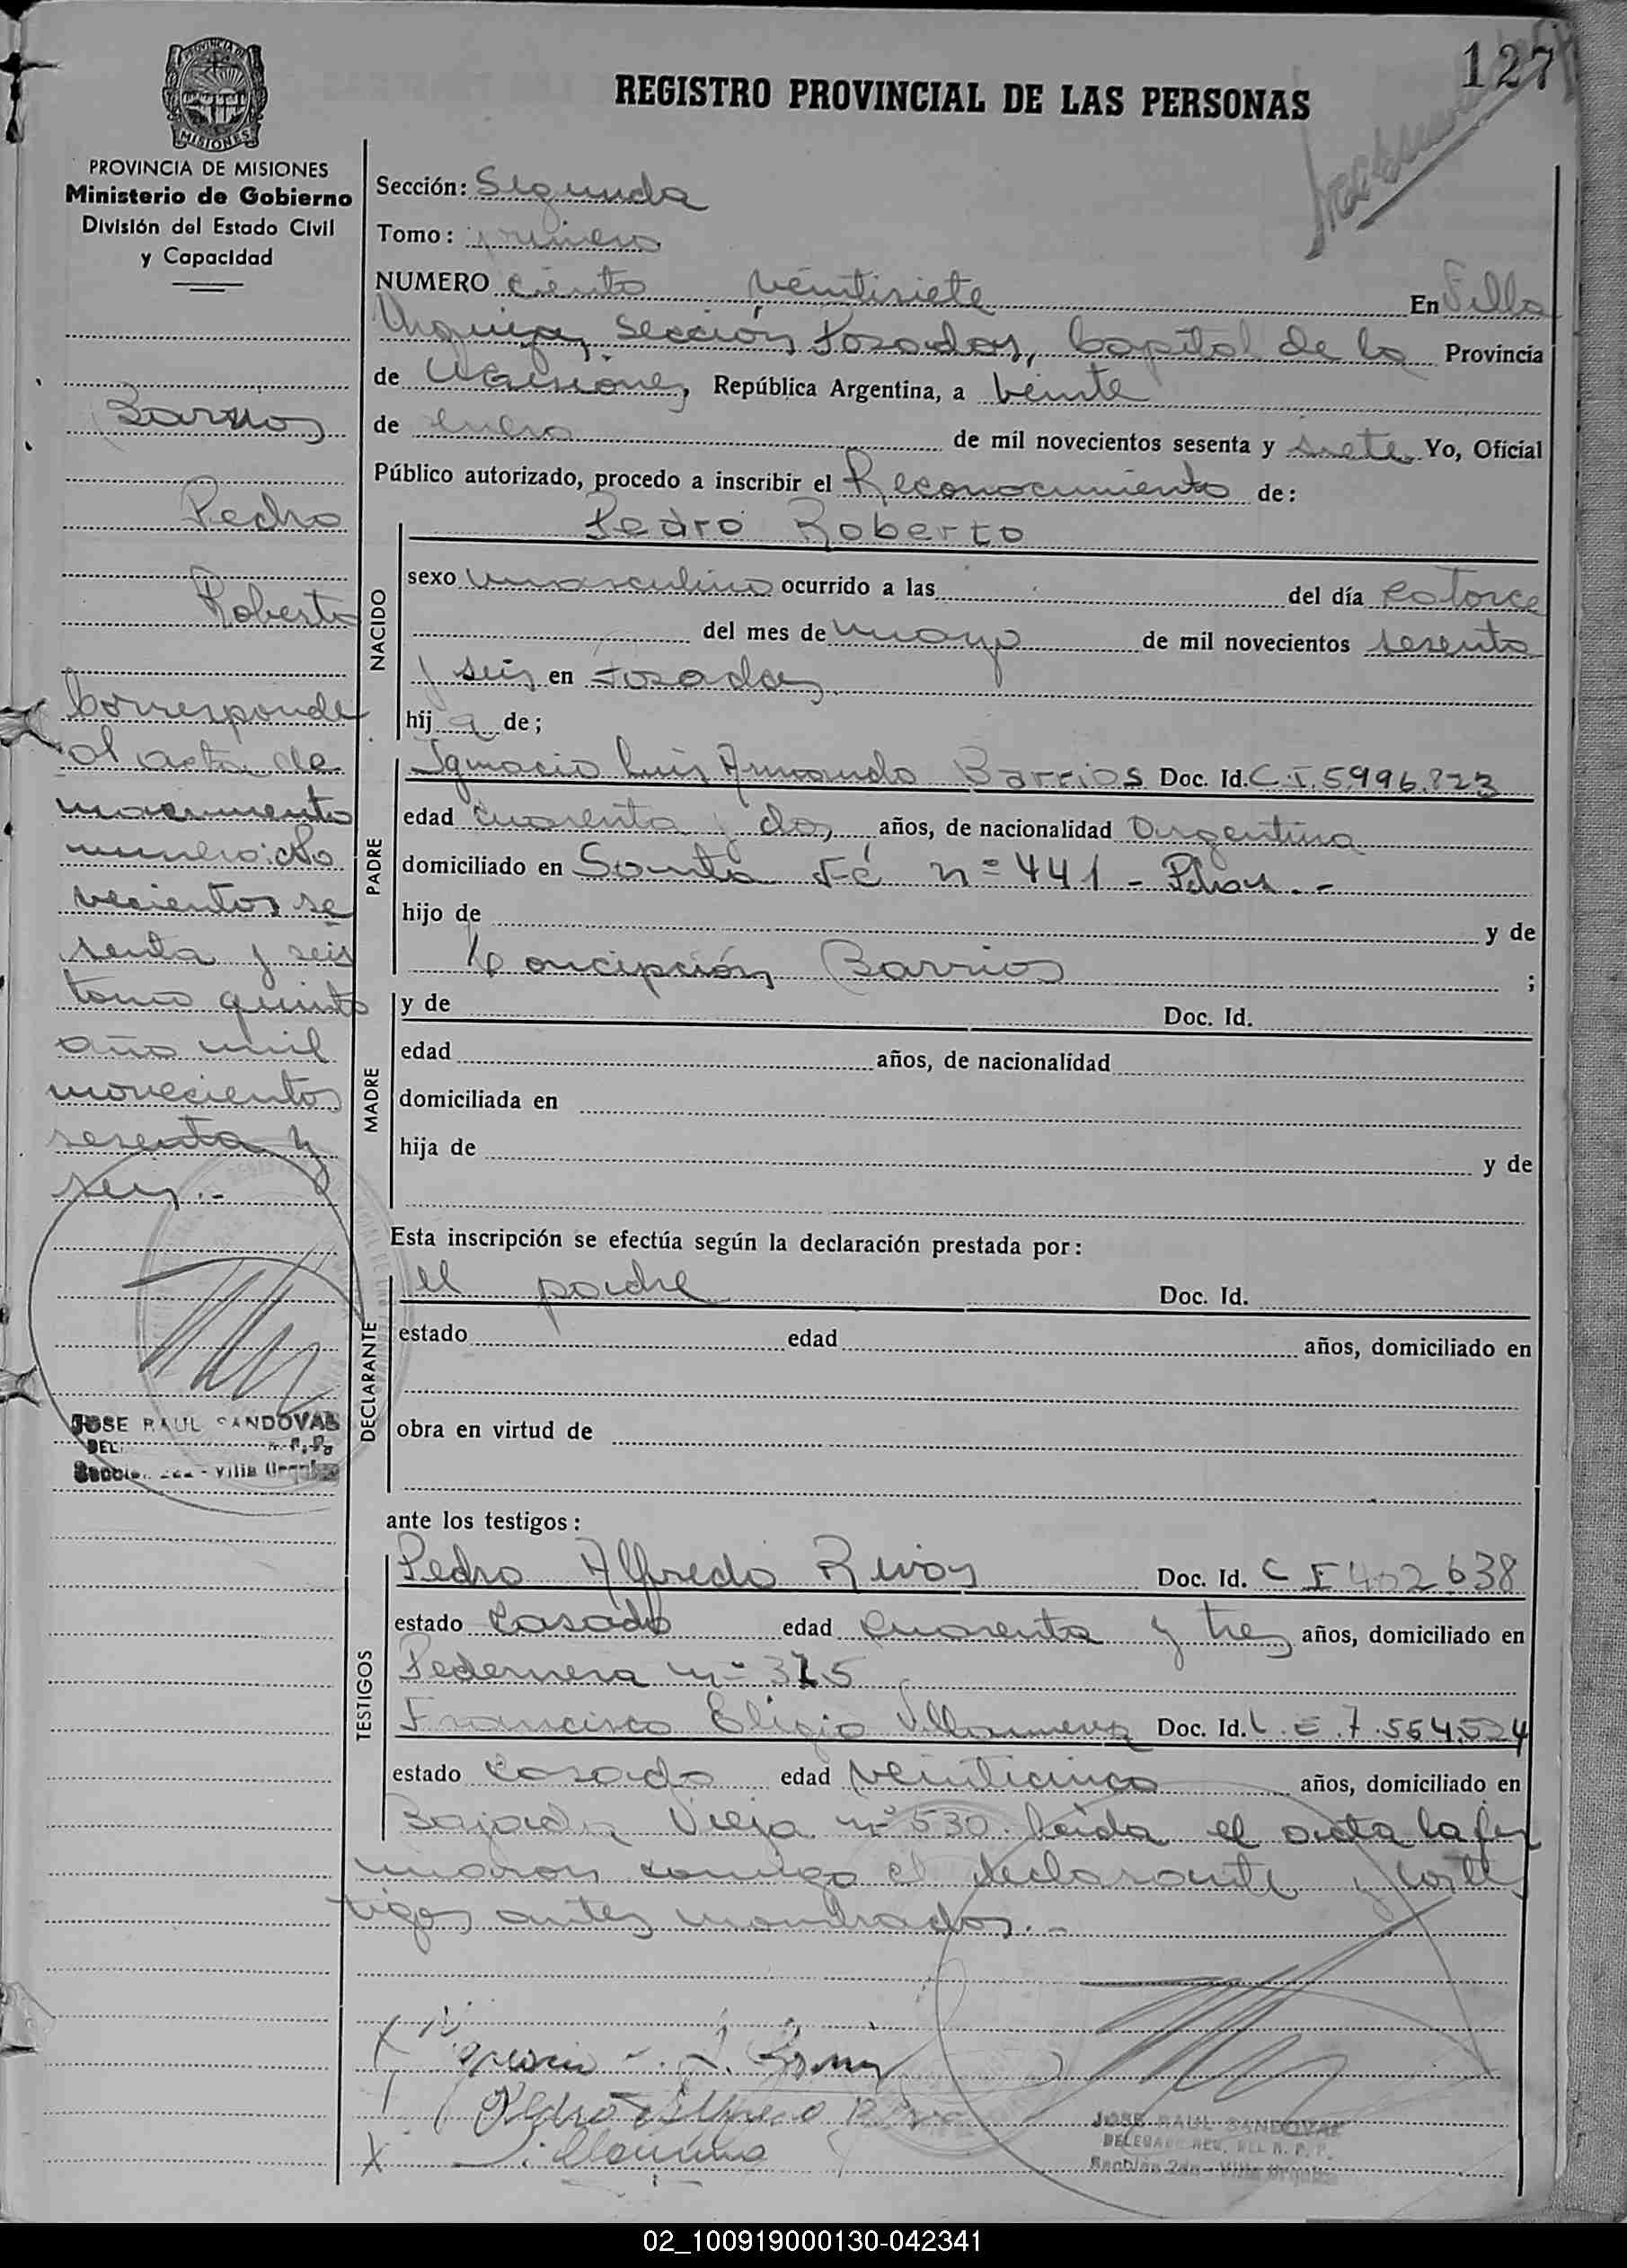 127
REGISTRO PROVINCIAL DE LAS PERSONAS
PROVINCIA DE MISIONES
Ministerio de Gobierno
División del Estado Civil
y Capacidad
Barrios
Pedro
Roberto
Corresponde
al acta de
nacimiento
numero: No
vecientos se
senta y seis
tomo quinto
año mil
novecientos
sesenta y
seis.-
JOSE RAUL SANDOVAL
Villa Urquiza
Sección: Segunda
Tomo: primero
NUMERO ciento veintisiete En Villa
Urquiza, Sección Posadas, Capital de la Provincia
de Misiones, República Argentina, a veinte
de enero de mil novecientos sesenta y siete Yo, Oficial
Público autorizado, procedo a inscribir el Reconocimiento de:
NACIDO
Pedro Roberto
sexo masculino ocurrido a las del día catorce
del mes de mayo de mil novecientos sesenta
y seis en Posadas
hij de;
PADRE
Ignacio Luis Armando Barrios Doc. Id. C.I. 5996.823
edad cuarenta y dos, años, de nacionalidad Argentina
domiciliado en Santa Fé nº 441 - Pdas. -
hijo de y de
Concipción Barrios ;
MADRE
y de Doc. Id.
edad años, de nacionalidad
domiciliada en
hija de y de
Esta inscripción se efectúa según la declaración prestada por:
DECLARANTE
el padre Doc. Id.
estado edad años, domiciliado en
obra en virtud de
ante los testigos:
TESTIGOS
Pedro Alfredo Rivas Doc. Id. C I 402638
estado casado edad cuarenta y tres años, domiciliado en
Pedernera nº 315
Francisco Eligio Doc. Id. L.E. 7.564.524
estado casado edad veinticinco años, domiciliado en
Bajada Vieja nº 530. Leida el acta la fir
maron conmigo el declarante y los tes
tigos antes nombrados.-
JOSE RAUL SANDOVAL
DELEGADO REG. DEL R. P. P.
Sección 2da - Villa Urquiza
02_100919000130-042341